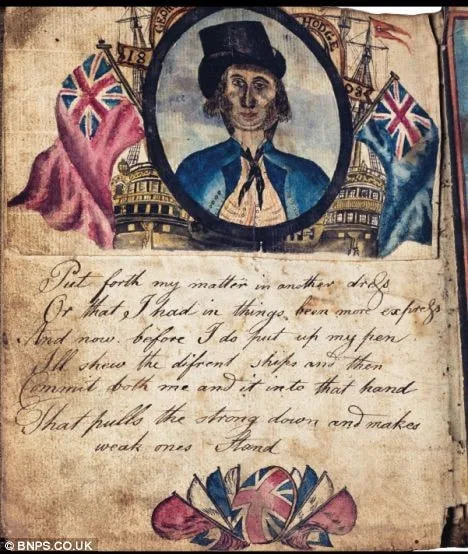 GEO HODGE
18 08
Put forth my matter in another dress
Or that I had in things been more express
And now before I do put up my pen
I'll shew the difrent ships and then
Commit both me and it into that hand
That pulls the strong down and makes
weak ones Stand
© BNPS.CO.UK